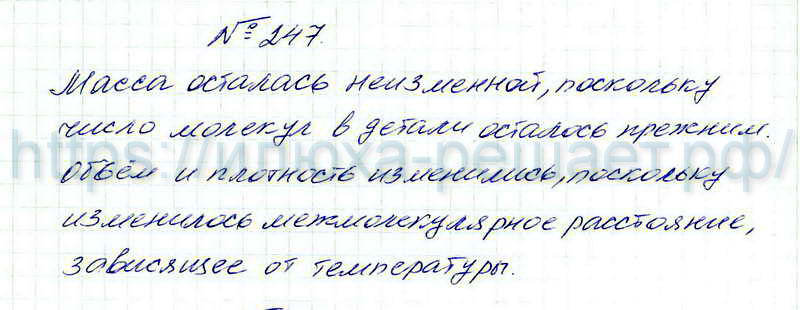 № 247.
Масса осталась неизменной, поскольку
число молекул в детали осталось прежним.
Объём и плотность изменились, поскольку
изменилось межмолекулярное расстояние,
зависящее от температуры.
https://илюха-решает.рф/